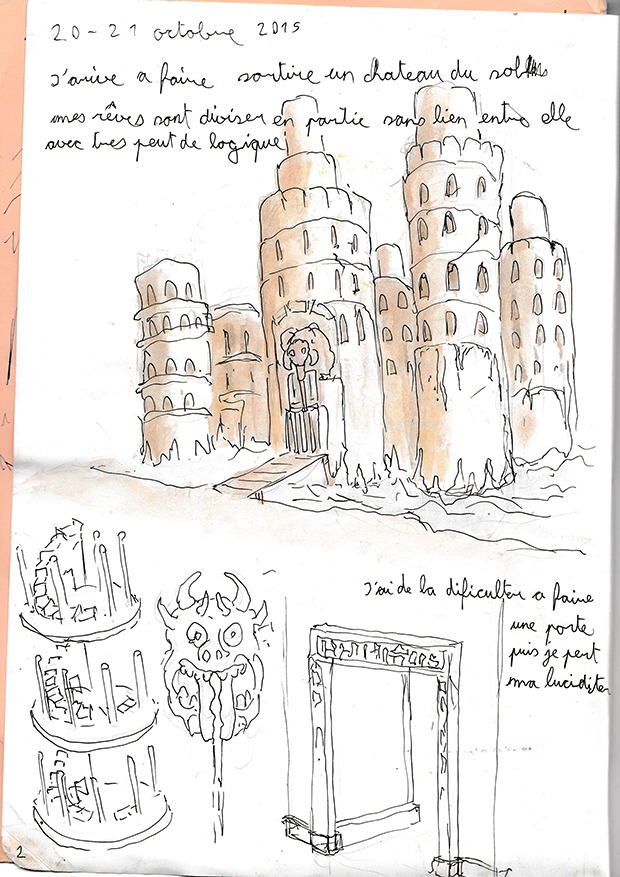 20-21 octobre 2015
J'arive a faire sortire un chateau du sol
mes rêves sont diviser en partie sans lien entre elle
avec tres peut de logique
J'ai de la dificulter a faire
une porte
puis je pert
ma luciditer
2